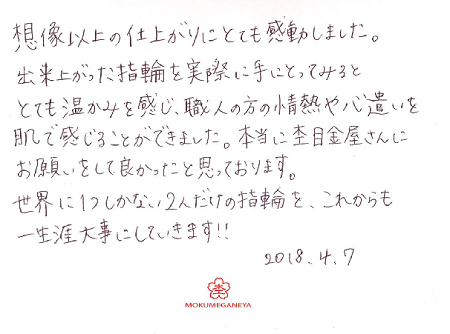 想像以上の仕上がりにとても感動しました。
出来上がった指輪を実際に手にとってみると
とても温かみを感じ、職人の方の情熱や心遣いを
肌で感じることができました。本当に杢目金屋さんに
お願いをして良かったと思っております。
世界に1つしかない2人だけの指輪を、これからも
一生涯大事にしていきます!!
2018.4.7
MOKUMEGANEYA